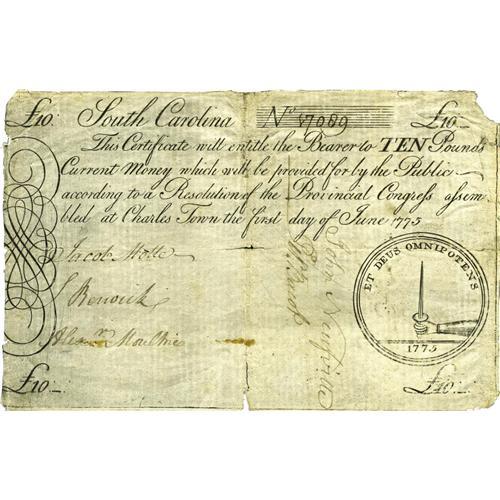 £10:_ South Carolina Nº 37089 £10:_
This Certificate will entitle the Bearer to TEN Pounds
Current Money which will be provided for by the Public
according to a Resolution of the Provincial Congress assem-
bled at Charles Town the first day of June 1775
Jacob Motte
Alexr. Moultrie
John
ET DEUS OMNIPOTENS
1775
£10:_ £10:_